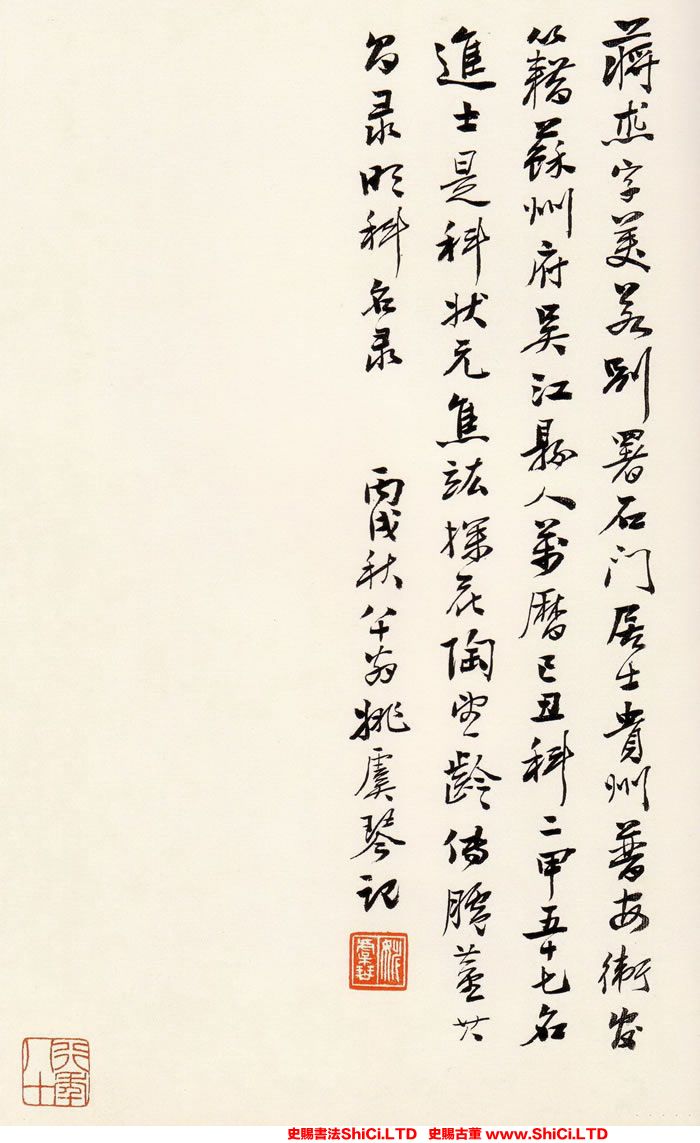 蔣杰字美若別署石门居士貴州普安衛
籍蘇州府吳江縣人萬曆己丑科二甲五十七名
進士是科狀元焦竑探花陶望齡傳臚董其
昌录明科名录 丙戌秋八十翁姚虞琴記
姚虞琴
行年八十
史賜書法ShiCi.LTD 史賜古董 www.ShiCi.LTD